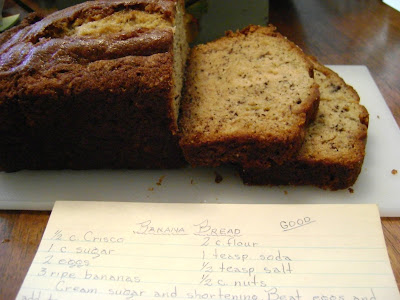 BANANA BREAD GOOD
½ c Crisco 2 c flour
1 c sugar 1 teasp soda
2 eggs ½ teasp salt
3 ripe bananas ½ c nuts
Cream sugar and shortening Beat eggs and
add